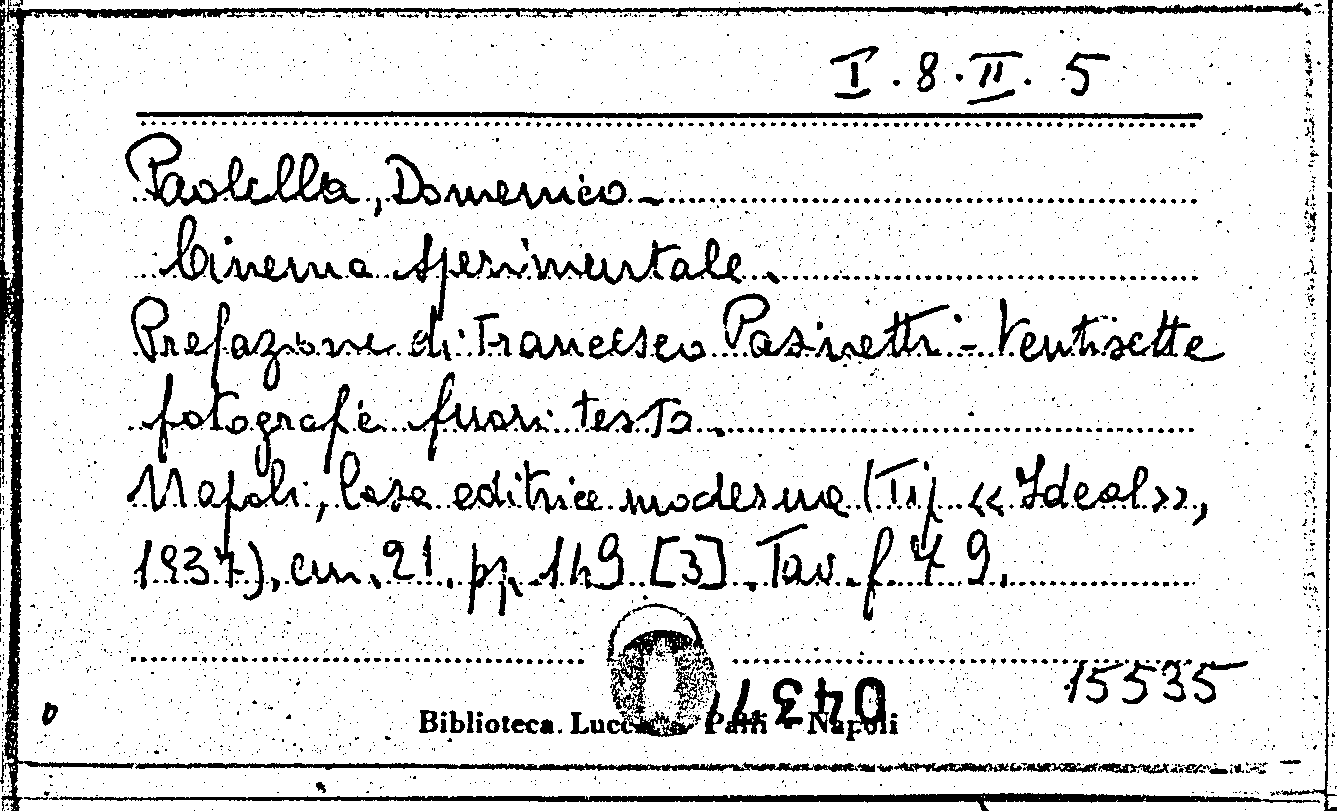 I.8.II.5
Paolella, Domenico –
Cinema sperimentale.
Prefazione di Francesco Pasinetti – Ventisette
fotografie fuori testo.
Napoli, Casa editrice moderna (Tip «Ideal»,
1937), cm. 21. pp. 149 [3]. Tav. f. t 9.
15535
Biblioteca Lucchesi Palli - Napoli